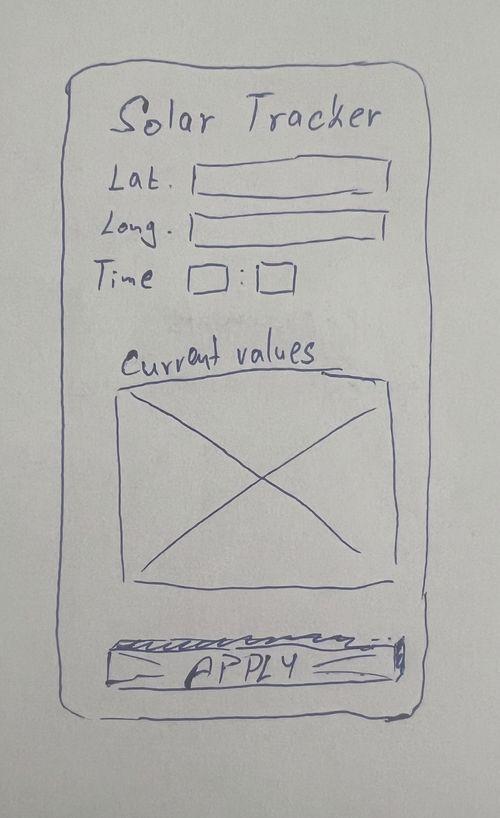 Solar Tracker
Lat.
Long.
Time :
Current values
APPLY